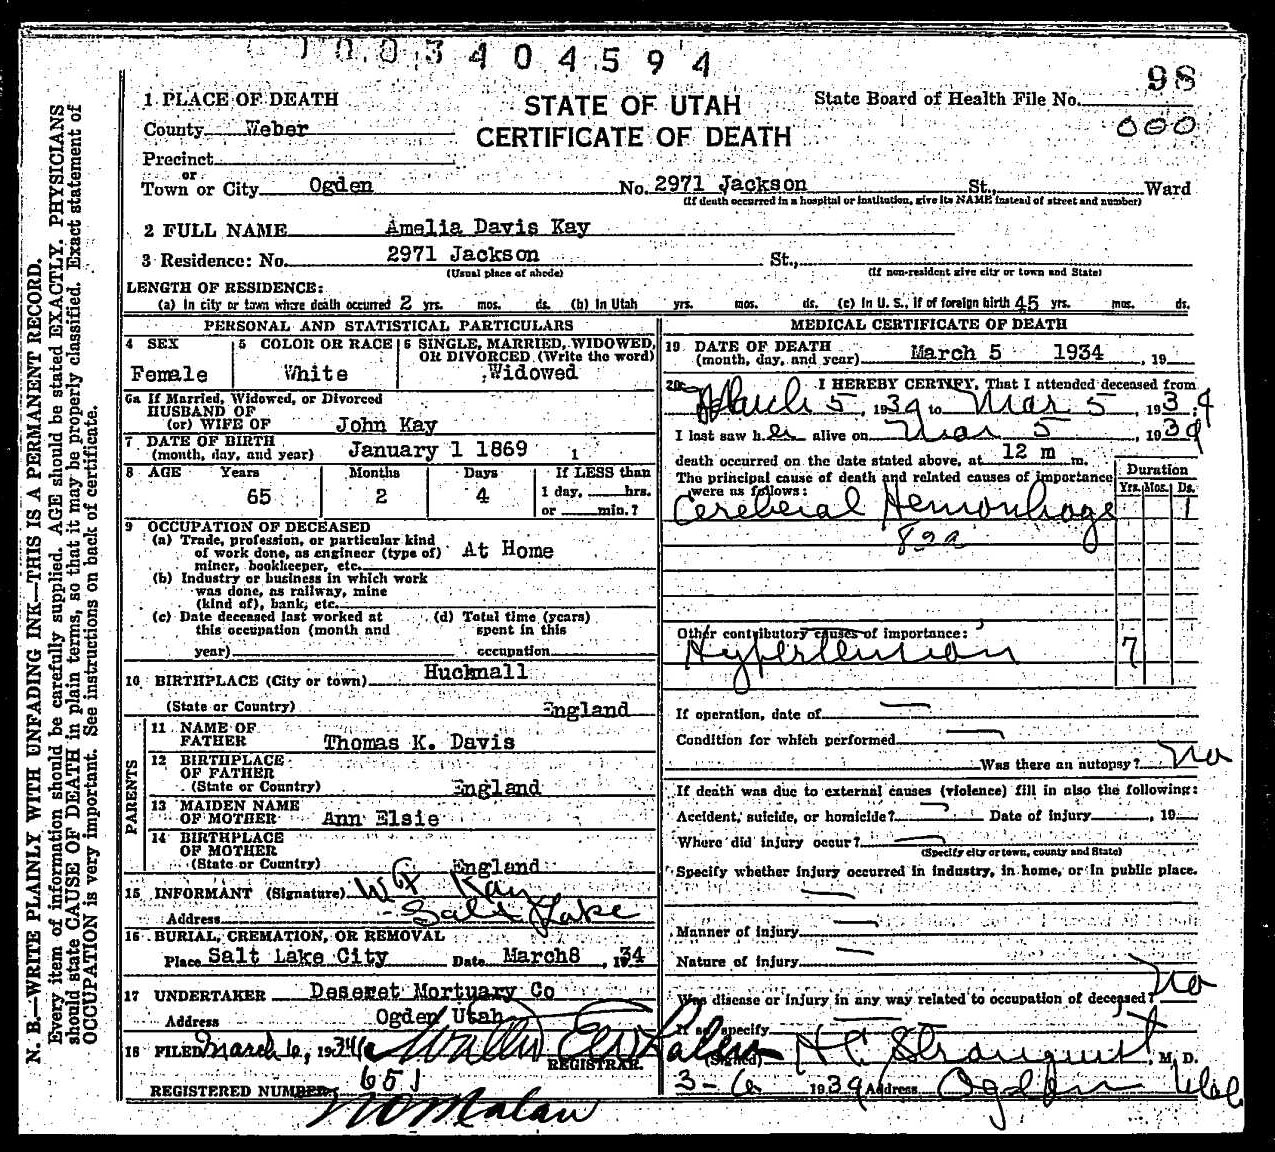 0003404594
98
1 PLACE OF DEATH
STATE OF UTAH
CERTIFICATE OF DEATH
State Board of Health File No.
000
County Weber
Precinct
or
Town or City Ogden No. 2971 Jackson St., Ward
(If death occurred in a hospital or institution, give its NAME instead of street and number)
2 FULL NAME Amelia Davis Kay
3 Residence: No. 2971 Jackson St.,
(Usual place of abode) (If non-resident give city or town and State)
LENGTH OF RESIDENCE:
(a) In city or town where death occurred 2 yrs. mos. ds. (b) In Utah yrs. mos. ds. (c) In U. S., if of foreign birth 45 yrs. mos. ds.
PERSONAL AND STATISTICAL PARTICULARS
4 SEX Female
5 COLOR OR RACE White
6 SINGLE, MARRIED, WIDOWED, OR DIVORCED (Write the word) Widowed
6a If Married, Widowed, or Divorced
HUSBAND OF
(or) WIFE OF John Kay
7 DATE OF BIRTH
(month, day, and year) January 1 1869
8 AGE Years Months Days If LESS than
65 2 4 1 day, hrs.
or min.?
9 OCCUPATION OF DECEASED
(a) Trade, profession, or particular kind
of work done, as engineer (type of) At Home
miner, bookkeeper, etc.
(b) Industry or business in which work
was done, as railway, mine
(kind of), bank, etc.
(c) Date deceased last worked at (d) Total time (years)
this occupation (month and spent in this
year) occupation
10 BIRTHPLACE (City or town) Hucknall
(State or Country) England
PARENTS
11 NAME OF
FATHER Thomas K. Davis
12 BIRTHPLACE
OF FATHER
(State or Country) England
13 MAIDEN NAME
OF MOTHER Ann Elsie
14 BIRTHPLACE
OF MOTHER
(State or Country) England
15 INFORMANT (Signature) Kay
Address Salt Lake
16 BURIAL, CREMATION, OR REMOVAL
Place Salt Lake City Date March8, 1934
17 UNDERTAKER Deseret Mortuary Co
Address Ogden Utah
18 FILED March 6, 1934
REGISTRAR.
REGISTERED NUMBER 651
MEDICAL CERTIFICATE OF DEATH
19 DATE OF DEATH
(month, day, and year) March 5 1934, 19
20 I HEREBY CERTIFY, That I attended deceased from
March 5, 1934 to Mar 5, 1934
I last saw her alive on Mar 5, 1934
death occurred on the date stated above, at 12 m m.
The principal cause of death and related causes of importance
were as follows:
Duration
Yrs. Mos. Ds.
Cerebral Hemorrhage 1
82a
Other contributory causes of importance:
Hypertension 7
If operation, date of —
Condition for which performed —
Was there an autopsy? No
If death was due to external causes (violence) fill in also the following:
Accident, suicide, or homicide? — Date of injury , 19
Where did injury occur? —
(Specify city or town, county and State)
Specify whether injury occurred in industry, in home, or in public place.
—
Manner of injury —
Nature of injury —
Was disease or injury in any way related to occupation of deceased? No
If so, specify
(Signed) , M. D.
3-6 1934 Address Ogden Utah
N. B.—WRITE PLAINLY WITH UNFADING INK—THIS IS A PERMANENT RECORD.
Every item of information should be carefully supplied. AGE should be stated EXACTLY. PHYSICIANS
should state CAUSE OF DEATH in plain terms, so that it may be properly classified. Exact statement of
OCCUPATION is very important. See instructions on back of certificate.